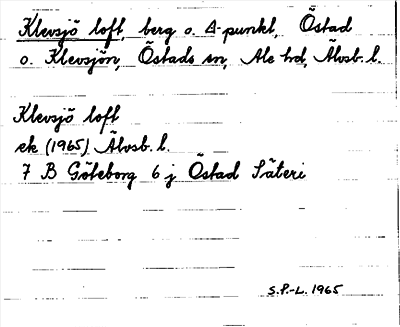 Klevsjö loft, berg o. Δ-punkt, Östad
o. Klevsjön, Östads sn, Ale hd, Älvsb. l.
Klevsjö loft
ek (1965) Älvsb. l.
7 B Göteborg 6 j Östad Säteri
S.P.-L. 1965